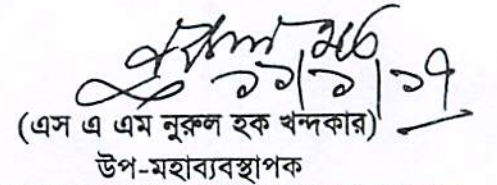 ১১|১|১৭
(এস এ এম নুরুল হক খন্দকার)
উপ-মহাব্যবস্থাপক